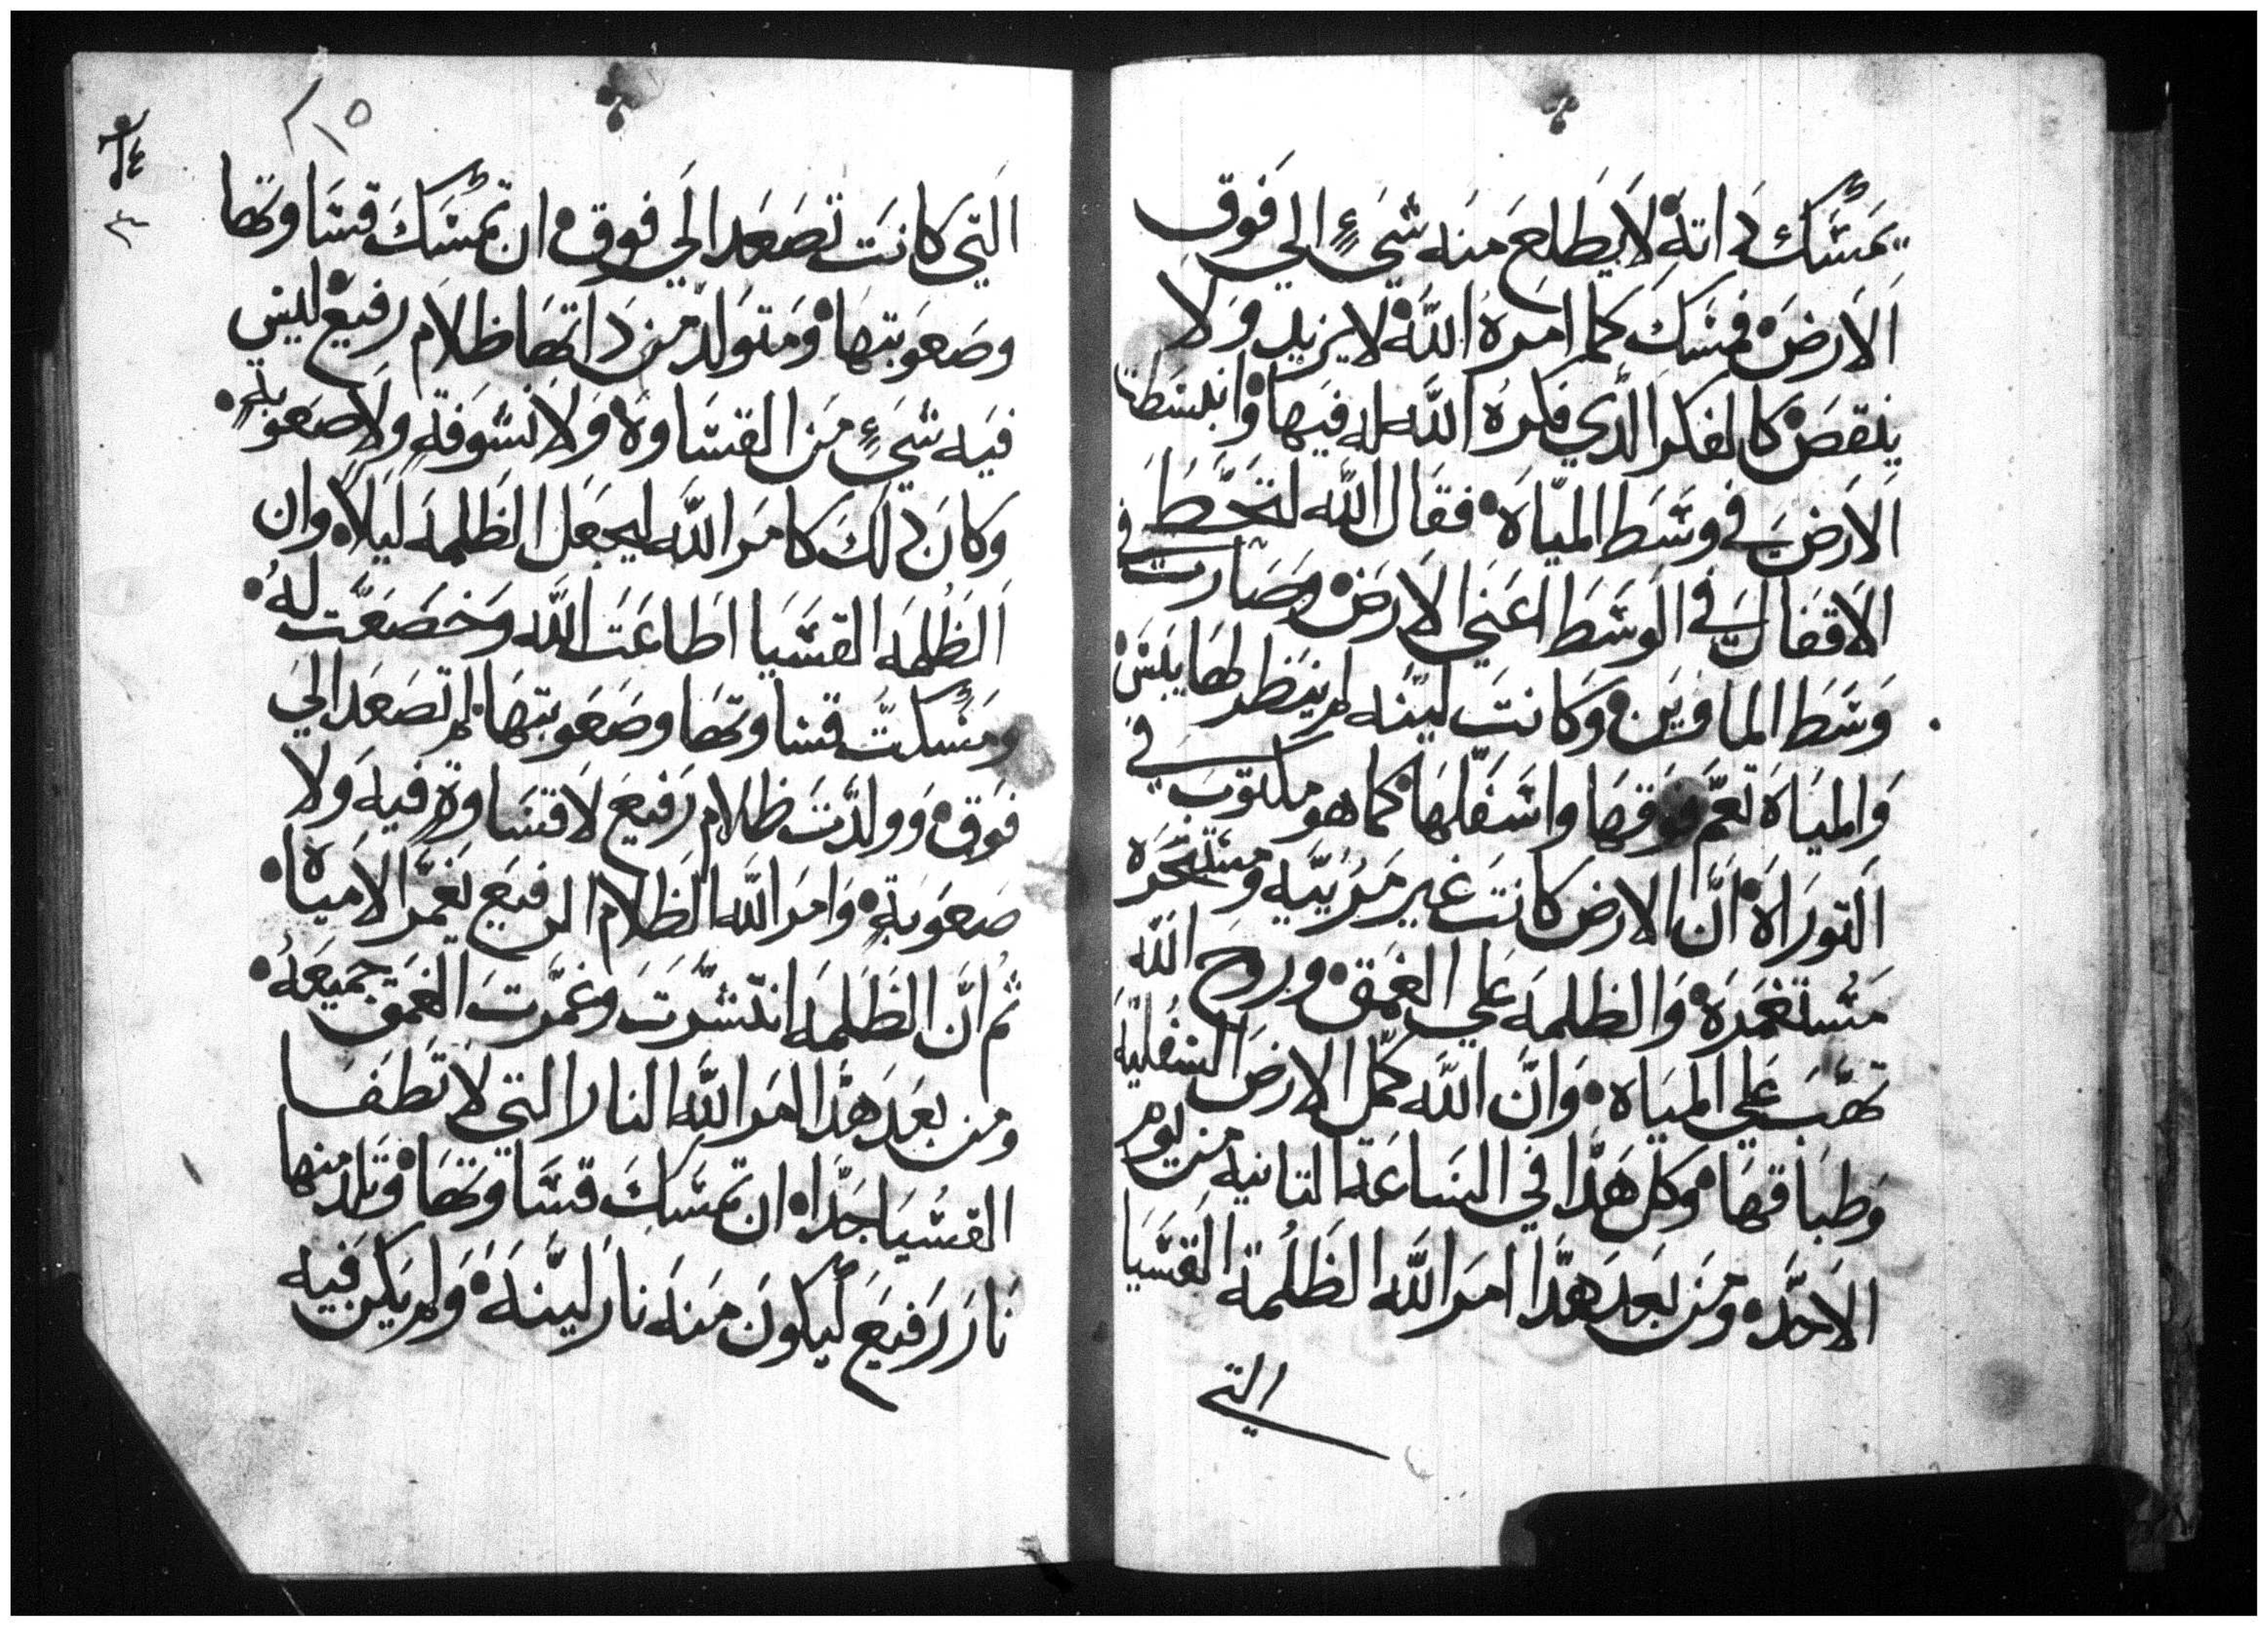 يمسك داته لا يطلع منه شيءٍ الي فوق
الارض فمسك كما امره الله لا يزيد ولا
ينقص كالفكر الدي فكره الله له فيها وانبسطت
الارض في وسط المياه فقال الله لتحط في
الاقفال في الوسط اعني الارض وصارت
وسط الماوين وكانت لينه لم ينظر لها يبس
والمياه تعم فوقها واسفلها كما هو مكتوب في
التوراه ان الارض كانت غير مريّيه
مستغمره والظلمه علي الغمق وروح الله
تهب علي المياه وان الله كمل الارض السفليه
وطباقها وكل هدا في الساعة التانيه من يوم
الاحد ومن بعد هدا امر الله الظلمة القسيا
التي
٢١٥
التي كانت تصعد الي فوق ان تمسك قساوتها
وصعوبتها ومتولد من داتها ظلام رفيع ليس
فيه شيءٍ من القساوه ولا نشوفةٍ ولا صعوبةٍ
وكان دلك كامر الله ليجعل الظلمه ليلاً وان
الظلمه القسيا اطاعت الله وخضعت له
ومسكت قساوتها وصعوبتها لم تصعد الي
فوق وولدت ظلام رفيع لا قساوةٍ فيه ولا
صعوبةٍ وامر الله الظلام الرفيع يغمر الامياه
ثم ان الظلمه انتشرت وغمرت الغمق جميعه
ومن بعد هدا امر الله النار التي لا تطفا
القسيا جدا ان تمسك قساوتها وتلد منها
نار رفيع ليكون منه نار لينه ولم يكن فيه